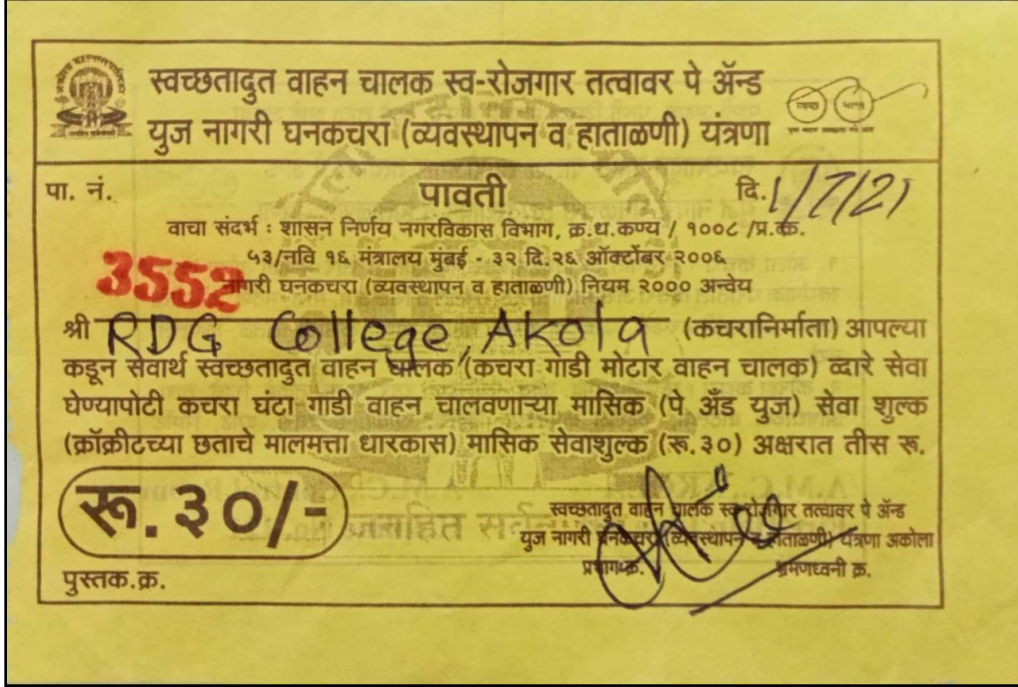 स्वच्छतादुत वाहन चालक स्व-रोजगार तत्वावर पे ॲन्ड
युज नागरी घनकचरा (व्यवस्थापन व हाताळणी) यंत्रणा
पा. नं. पावती दि. 1/7/21
वाचा संदर्भ : शासन निर्णय नगरविकास विभाग, क्र.ध.कण्य / १००८ /प्र.क्र.
५३/नवि १६ मंत्रालय मुंबई - ३२ दि.२६ ऑक्टोंबर २००६
3552 नागरी घनकचरा (व्यवस्थापन व हाताळणी) नियम २००० अन्वेय
श्री RDG College, Akola (कचरानिर्माता) आपल्या
कडून सेवार्थ स्वच्छतादुत वाहन चालक (कचरा गाडी मोटार वाहन चालक) व्दारे सेवा
घेण्यापोटी कचरा घंटा गाडी वाहन चालवणाऱ्या मासिक (पे अँड युज) सेवा शुल्क
(क्रॉक्रीटच्या छताचे मालमत्ता धारकास) मासिक सेवाशुल्क (रू.३०) अक्षरात तीस रू.
रू. ३०/-
स्वच्छतादुत वाहन चालक स्व-रोजगार तत्वावर पे ॲन्ड
युज नागरी घनकचरा (व्यवस्थापन व हाताळणी) यंत्रणा अकोला
प्रभाग क्र. भ्रमणध्वनी क्र.
पुस्तक.क्र.